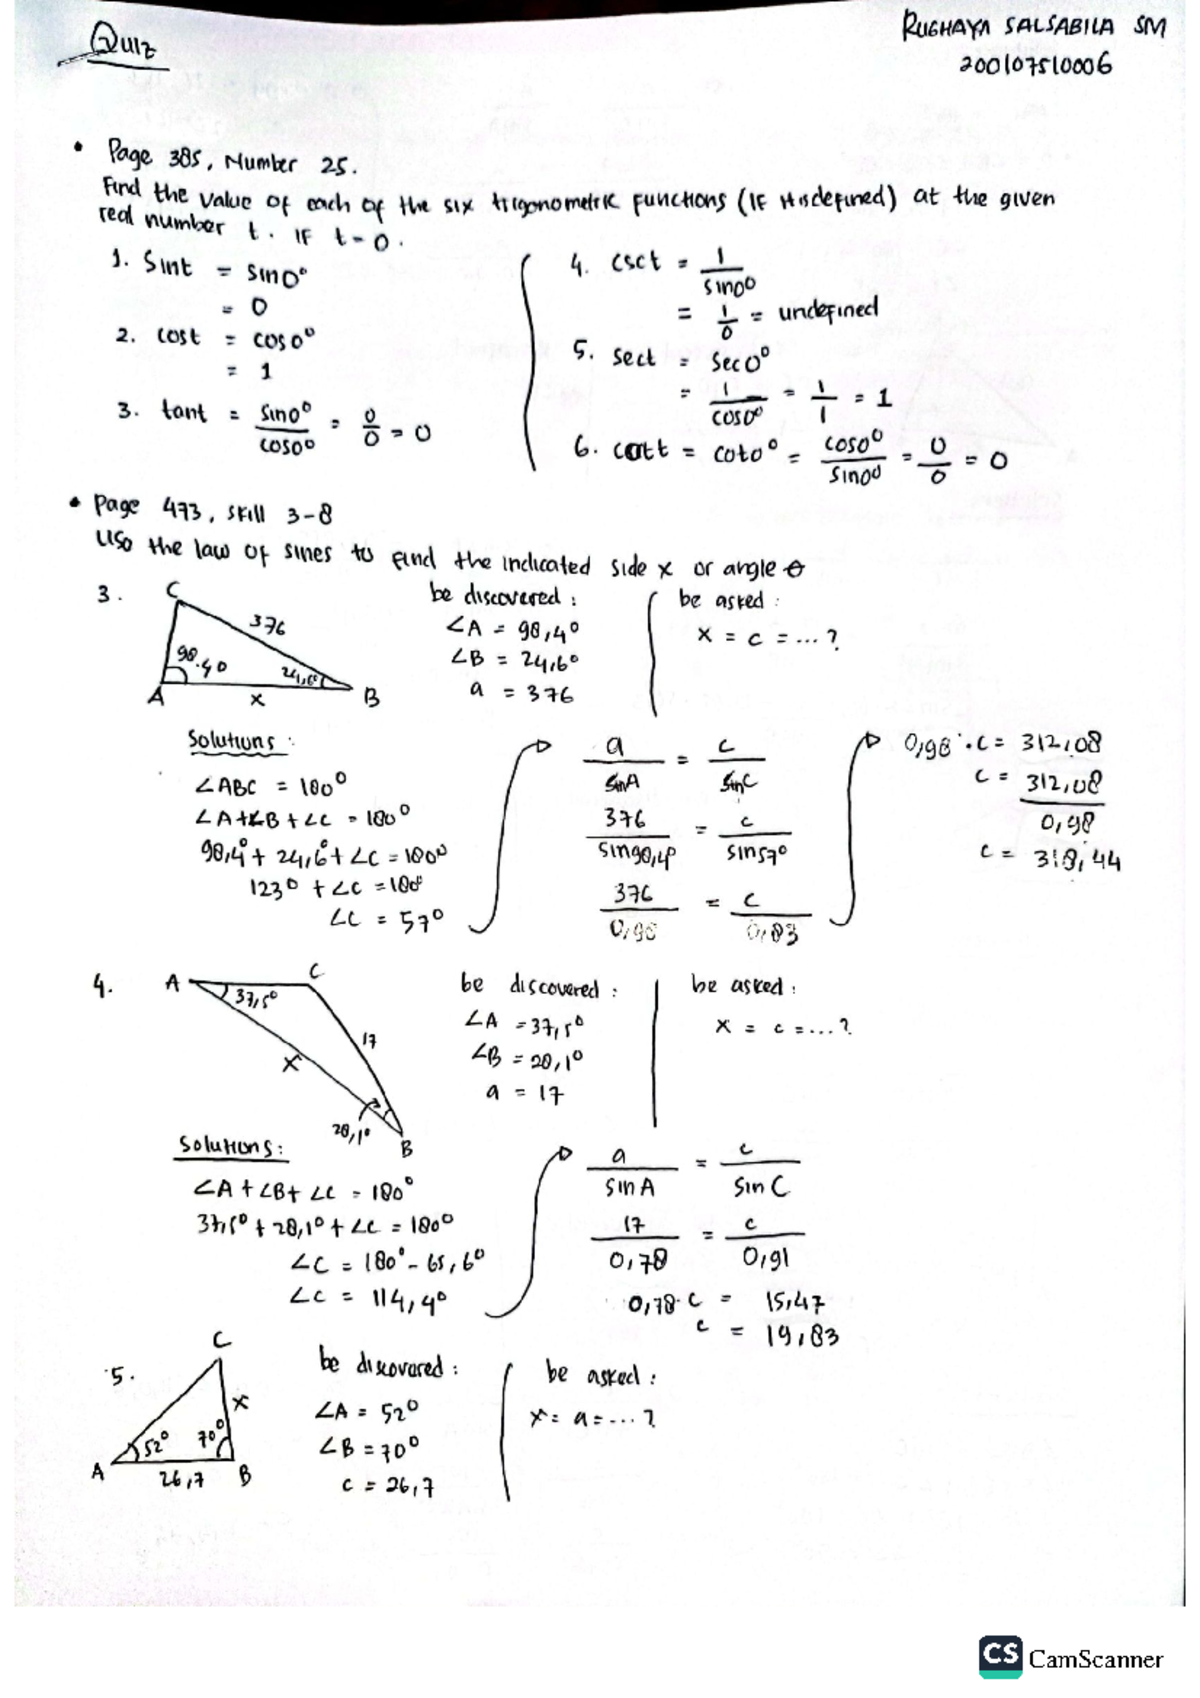 Quiz
RUGHAYA SALSABILA SM
200107510006
• Page 385, Number 25.
Find the value of each of the six trigonometric functions (IF it isdefined) at the given
real number t. IF t = 0.
1. Sin t = sin 0°
= 0
2. cost = cos 0°
= 1
3. tant = sin 0° / cos 0° = 0/0 = 0
4. csct = 1 / sin 0°
= 1/0 = undefined
5. sect = sec 0°
= 1 / cos 0° = 1/1 = 1
6. cott = cot 0° = cos 0° / sin 0° = 0/0 = 0
• Page 473, skill 3-8
Use the law of sines to find the indicated side x or angle θ
3.
C
376
98.40
24,6°
A
x
B
be discovered :
∠A = 98,4°
∠B = 24,6°
a = 376
be asked :
x = c = ... ?
Solutions :
∠ABC = 180°
∠A + ∠B + ∠C = 180°
98,4° + 24,6° + ∠C = 180°
123° + ∠C = 180°
∠C = 57°
a / sin A = c / sin C
376 / sin 98,4° = c / sin 57°
376 / 0,98 = c / 0,83
0,98 . c = 312,08
c = 312,08 / 0,98
c = 318,44
4.
A
C
37,5°
17
x
28,1°
B
be discovered :
∠A = 37,5°
∠B = 28,1°
a = 17
be asked :
x = c = ... ?
Solutions :
∠A + ∠B + ∠C = 180°
37,5° + 28,1° + ∠C = 180°
∠C = 180° - 65,6°
∠C = 114,4°
a / sin A = c / sin C
17 / 0,78 = c / 0,91
0,78 . c = 15,47
c = 19,83
5.
C
x
52°
70°
A
26,7
B
be discovered :
∠A = 52°
∠B = 70°
c = 26,7
be asked :
x = a = ... ?
CS CamScanner